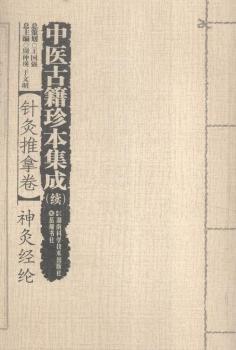 中医古籍珍本集成
(续)
总策划◎王国强
总主编◎周仲瑛 于文明
【针灸推拿卷】神灸经纶
湖南科学技术出版社
岳麓书社